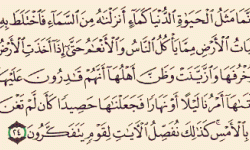 نَّمَا مَثَلُ الْحَيَوٰةِ الدُّنْيَا كَمَآءٍ أَنزَلْنَٰهُ مِنَ السَّمَآءِ فَاخْتَلَطَ بِهِ
بَاتُ الْأَرْضِ مِمَّا يَأْكُلُ النَّاسُ وَالْأَنْعَٰمُ حَتَّىٰٓ إِذَآ أَخَذَتِ الْأَرْضُ
خْرُفَهَا وَازَّيَّنَتْ وَظَنَّ أَهْلُهَآ أَنَّهُمْ قَٰدِرُونَ عَلَيْهَآ
تَىٰهَآ أَمْرُنَا لَيْلًا أَوْ نَهَارًا فَجَعَلْنَٰهَا حَصِيدًا كَأَن لَّمْ تَغْنَ
بِالْأَمْسِ كَذَٰلِكَ نُفَصِّلُ الْءَايَٰتِ لِقَوْمٍ يَتَفَكَّرُونَ ٢٤